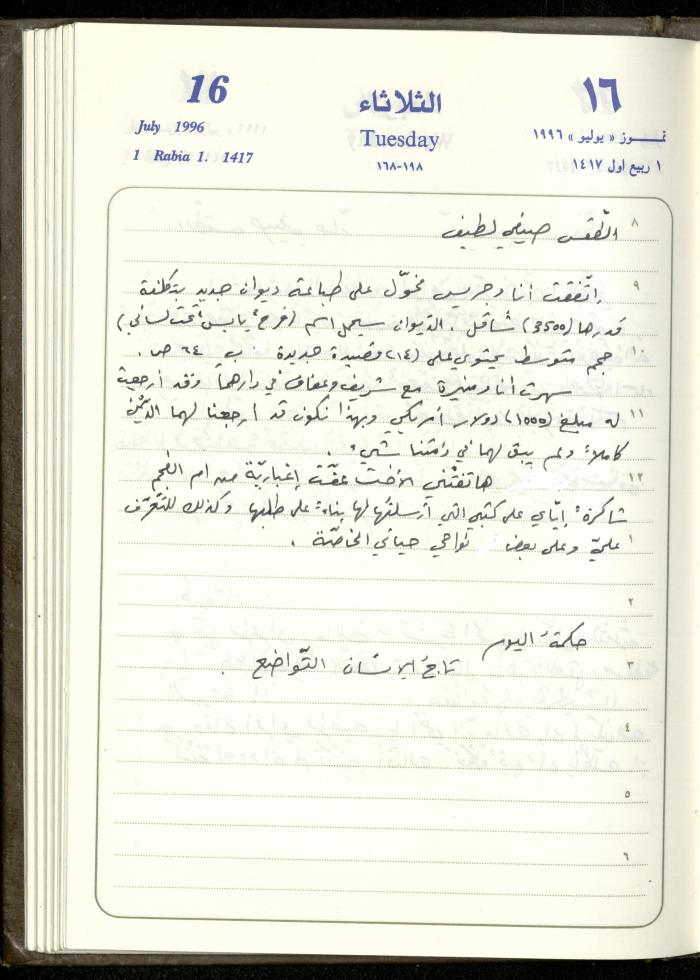 16
July 1996
1 Rabia 1. 1417
الثلاثاء
Tuesday
١٦٨-١٩٨
١٦
تمــوز « يوليو » ١٩٩٦
١ ربيع اول ١٤١٧
٨ الطّقس صيفي لطيف
٩ إتّفقت أنا وجريس مخوّل على طباعة ديوان جديد بتكلفة
قدرها (3500) شاقل . الدّيوان سيحمل اسم (فرحٌ يابسٌ تحت لساني)
١٠ حجم متوسط يحتوي على (٢١٤) قصيدة جديدة ب ٦٤ ص .
سهرت أنا ومنيرة مع شريف وعفاف في دارهما وقد أرجعت
١١ له مبلغ (١٥٥٥) دولار أمريكي وبهذا نكون قد أرجعنا لهما الدَّيْن
كاملاً ولم يبق لهما في ذمّتنا شيءٌ .
١٢ هاتفتني الأخت عفّة إغباريّة من ام الفحم
شاكرةً إيّاي على كتبي التي أرسلتها لها بناءً على طلبها وكذلك للتّعرّف
١ عليّ وعلى بعض نواحي حياتي الخاصّة .
٢
حكمةُ اليوم
٣ تاجُ الإنسان التّواضع .
٤
٥
٦